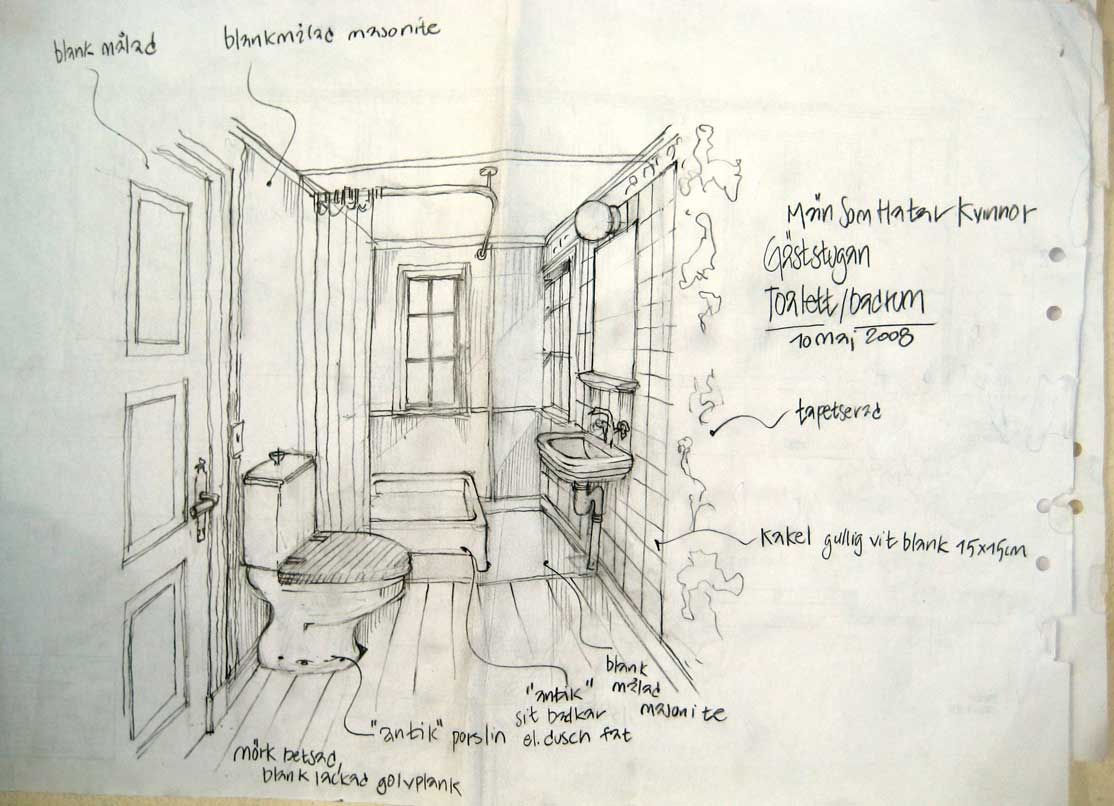 blank målad
blankmålad masonite
Män Som Hatar Kvinnor
Gäststugan
Toalett/badrum
10 maj 2008
tapetserad
Kakel gullig vit blank 15x15cm
blank
målad
masonite
"antik"
sit badkar
el. dusch fat
"antik" porslin
mörk betsad,
blank lackad golvplank